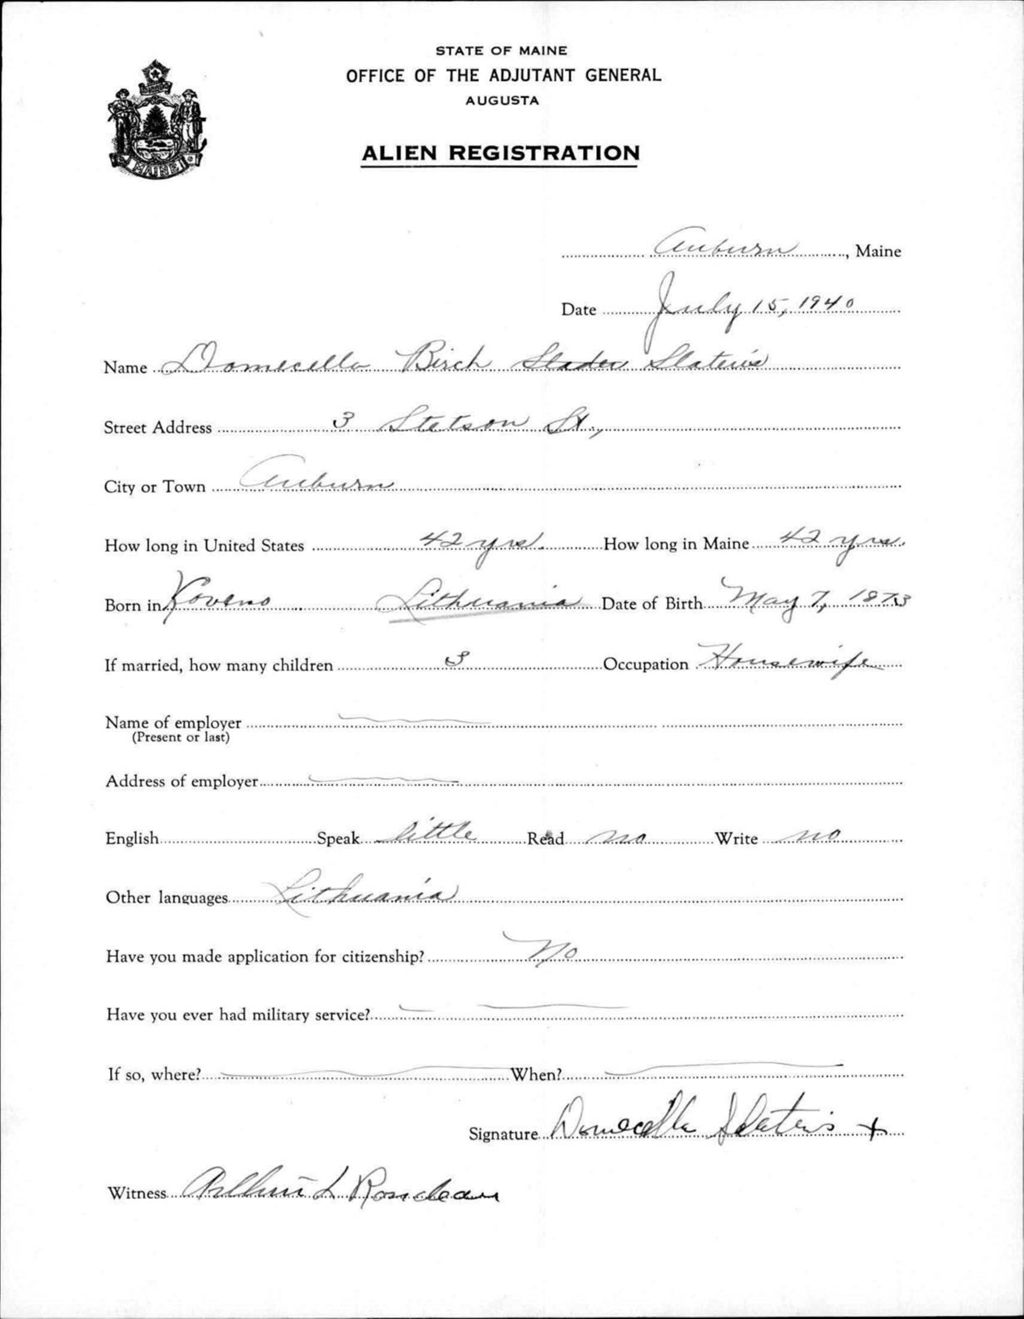 STATE OF MAINE
OFFICE OF THE ADJUTANT GENERAL
AUGUSTA
ALIEN REGISTRATION
MAINE
Auburn, Maine
Date July 15, 1940
Name Domecella Birch Slater's
Street Address 3 Stetson St.,
City or Town Auburn
How long in United States 42 yrs. How long in Maine 42 yrs.
Born in Koveno Lithuania Date of Birth May 7, 1873
If married, how many children 3 Occupation Housewife
Name of employer
(Present or last)
Address of employer
English Speak little Read no Write no
Other languages Lithuania
Have you made application for citizenship? No
Have you ever had military service?
If so, where? When?
Signature Domecella Slater's +
Witness Arthur L